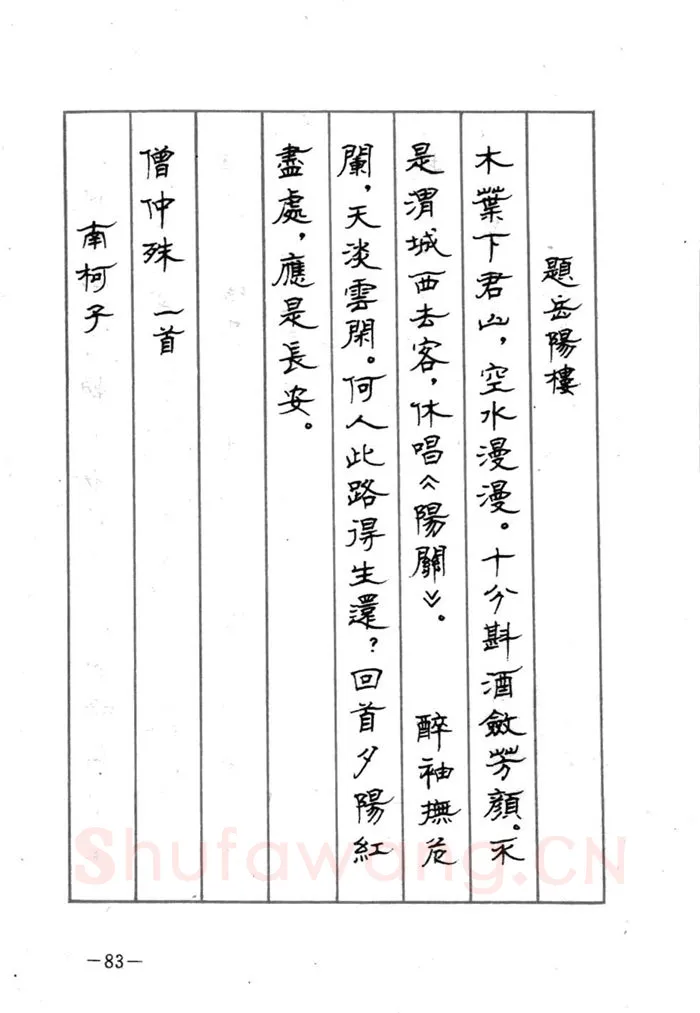 題岳陽樓
木葉下君山，空水漫漫。十分斟酒斂芳顏。不
是渭城西去客，休唱《陽關》。 醉袖撫危
闌，天淡雲閑。何人此路得生還？回首夕陽紅
盡處，應是長安。
僧仲殊 一首
南柯子
Shufawang.CN
—83—